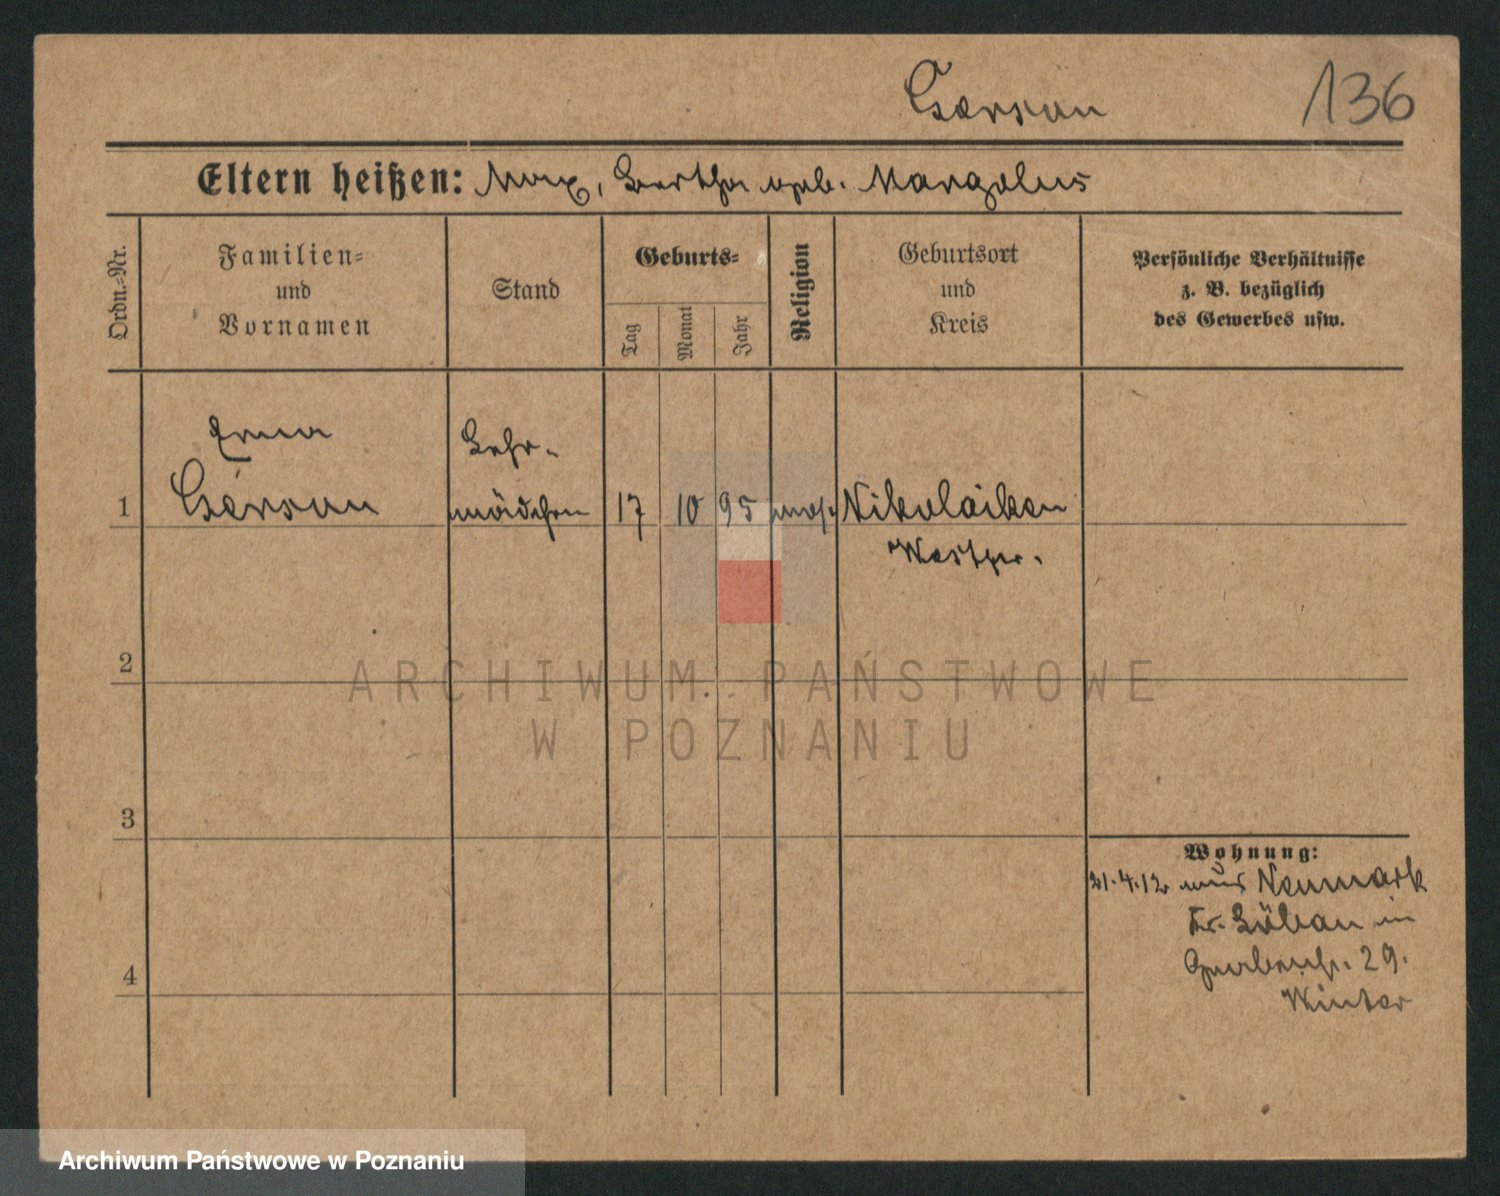 Gerson 136
Eltern heißen: Max, Bertha geb. Margolius
Ordn.-Nr.
Familien- und Vornamen
Stand
Geburts-
Tag
Monat
Jahr
Religion
Geburtsort und Kreis
Persönliche Verhältnisse
z. B. bezüglich
des Gewerbes usw.
Erna
Lehr-
1 Gerson mädchen 17 10 95 mos. Nikolaiken
Westpr.
2
ARCHIWUM PAŃSTWOWE
W POZNANIU
3
Wohnung:
21.4.12 aus Neumark
Kr. Löbau in
29.
Winter
4
Archiwum Państwowe w Poznaniu